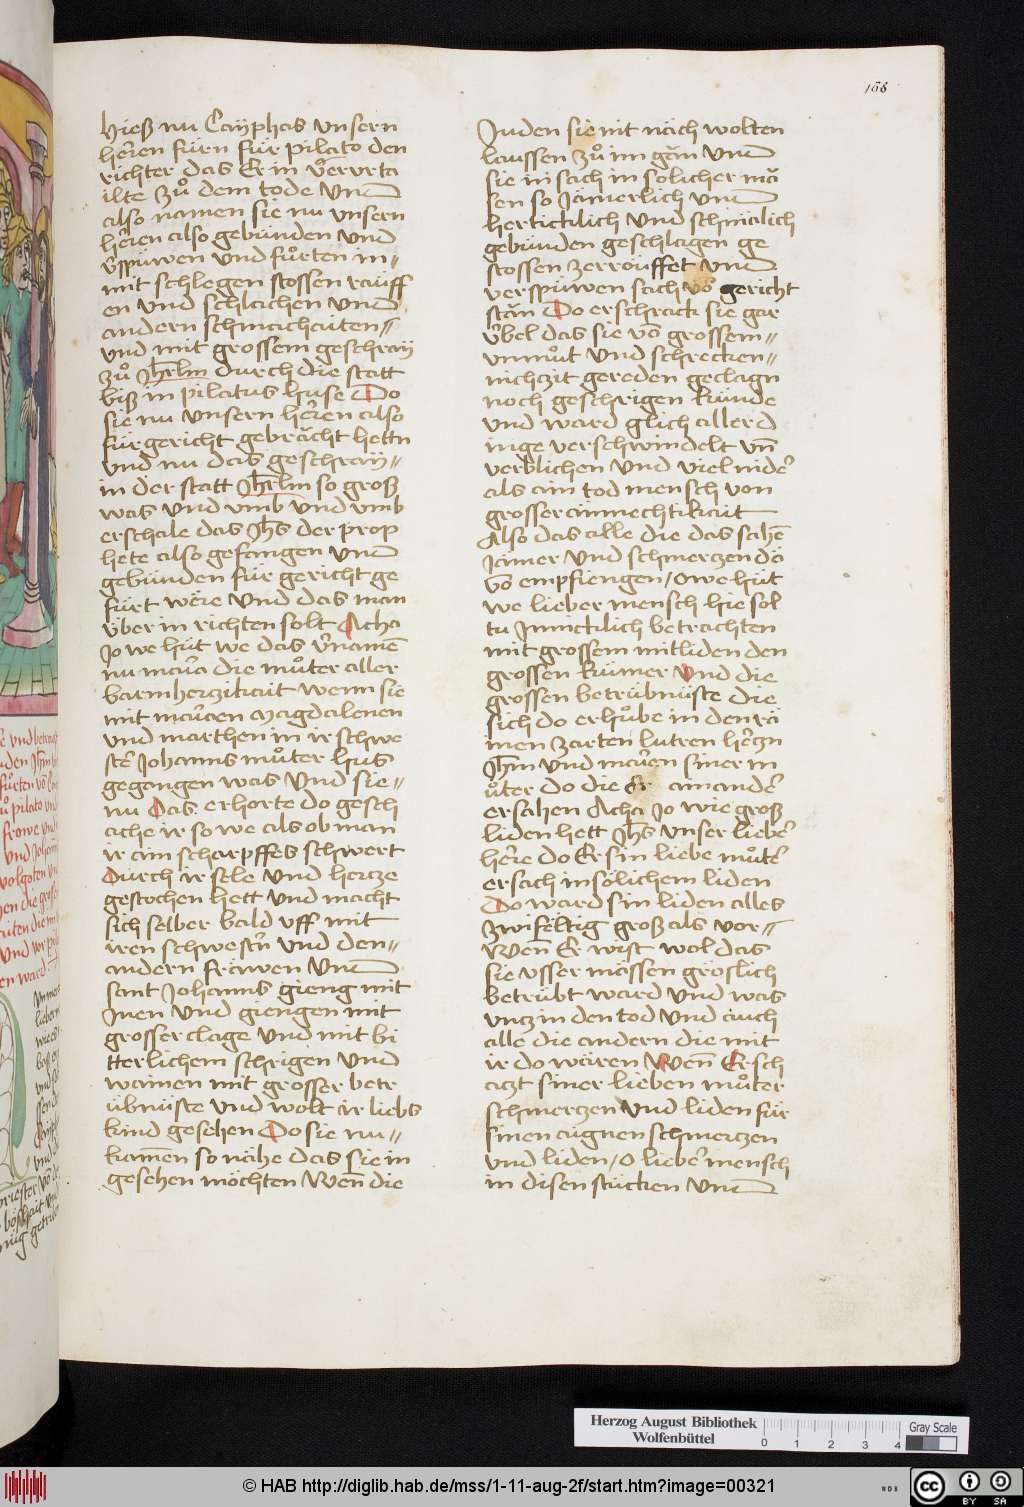 158
hieß nu Caÿphas vnsern
herren fürn für pilato den
richter das Er in v̈ervrta
ilte zů dem tode Vnd
also namen sie nu vnsern
herren also gebunden Vnd
v̈spüwen vnd fůrten in=
mit schlegen stossen rauff
en vnd schlachen vnd
andern schmachaiten=
vnd mit grossem geschraÿ
zů Jhrlm durch die statt
biß in pilatus huse Do
sie nu vnsern herren also
für gericht gebrächt hettn
vnd nu das geschraÿ=
in der statt Jhrlm so groß
was vnd vmb vnd vmb
erschale das Jhs der prop
hete also gefangen vnd
gebünden für gericht ge
fürt were Vnd das man
v̈ber in richten solt Acha
Jo we hüt we das v̈namē
nu maria die můter aller
barmhertzikait wenn sie
mit marien Magdalenen
vnd marthen in ir schwe
ster Johanns můter hus
gegangen was Vnd sie=
nu Das erhorte do gesch
ache ir so we als ob man
ir ain scharpffes schwert
Durch ir sele Vnd hertze
gestochen hett vnd macht
sich selber bald vff mit
iren schwestern vnd den=
andern fräwen Vnd
sant Johanns gieng mit
Jnen Vnd giengen mit
grosser clage Vnd mit bi
tterlichem schrigen Vnd
wainen mit grosser betr
übnüste vnd wolt ir liebs
kind gesehen Do sie nu=
kamen so nähe das sie in
gesehen möchten Wen̄ die
Juden sie nit näch wolten
laussen zů im gän vnd
sie in sach in solicher mā
sen so Jämerlich vnd
herticklich Vnd schmälich
gebünden geschlagen ge
stossen zerröuffet vnd
verspüwen sach vō gericht
stän Do erschrack sie gar
v̈bel das sie vō grossem=
vnmůt Vnd schrecken=
nichzit gereden geclagn
noch geschrigen künde
vnd ward glich aller d
inge verschwindelt vn̄
verblichen Vnd viel nider
als ain tod mensch von
grosser ainmechtikait
Also das alle die das sahē
Jamer Vnd schmertzen dā
vō empfiengen / O we hüt
we lieber mensch hie sol
tu Jnnicklich betrachten
mit grossem mitliden den
grossen kumer Vnd die
grossen betrübnüste die
sich do erhůbe in den rā
inen zarten lutren hertzn
Jhm vnd marien siner m
ůter do die Er ainander
ersahen Acha Jo wie groß
liden hett Jhs vnser lieber
herre do Er sin liebe můter
ersach in sölichem liden
Do ward sin liden alles
zwifeltig groß als vor=
Wen̄ Er wist wol das
sie vsser mässen gröslich
betrübt ward vnd was
vntz in den tod Vnd auch
alle die andern die mit
ir do wären Wen̄ Er sch
atzt siner lieben můter
schmertzen Vnd liden für
sinen aignen schmertzen
vnd liden / O lieber mensch
in disen stücken Vnd
Herzog August Bibliothek
Wolfenbüttel
0 1 2 3 4
Gray Scale
© HAB http://diglib.hab.de/mss/1-11-aug-2f/start.htm?image=00321
cc BY SA